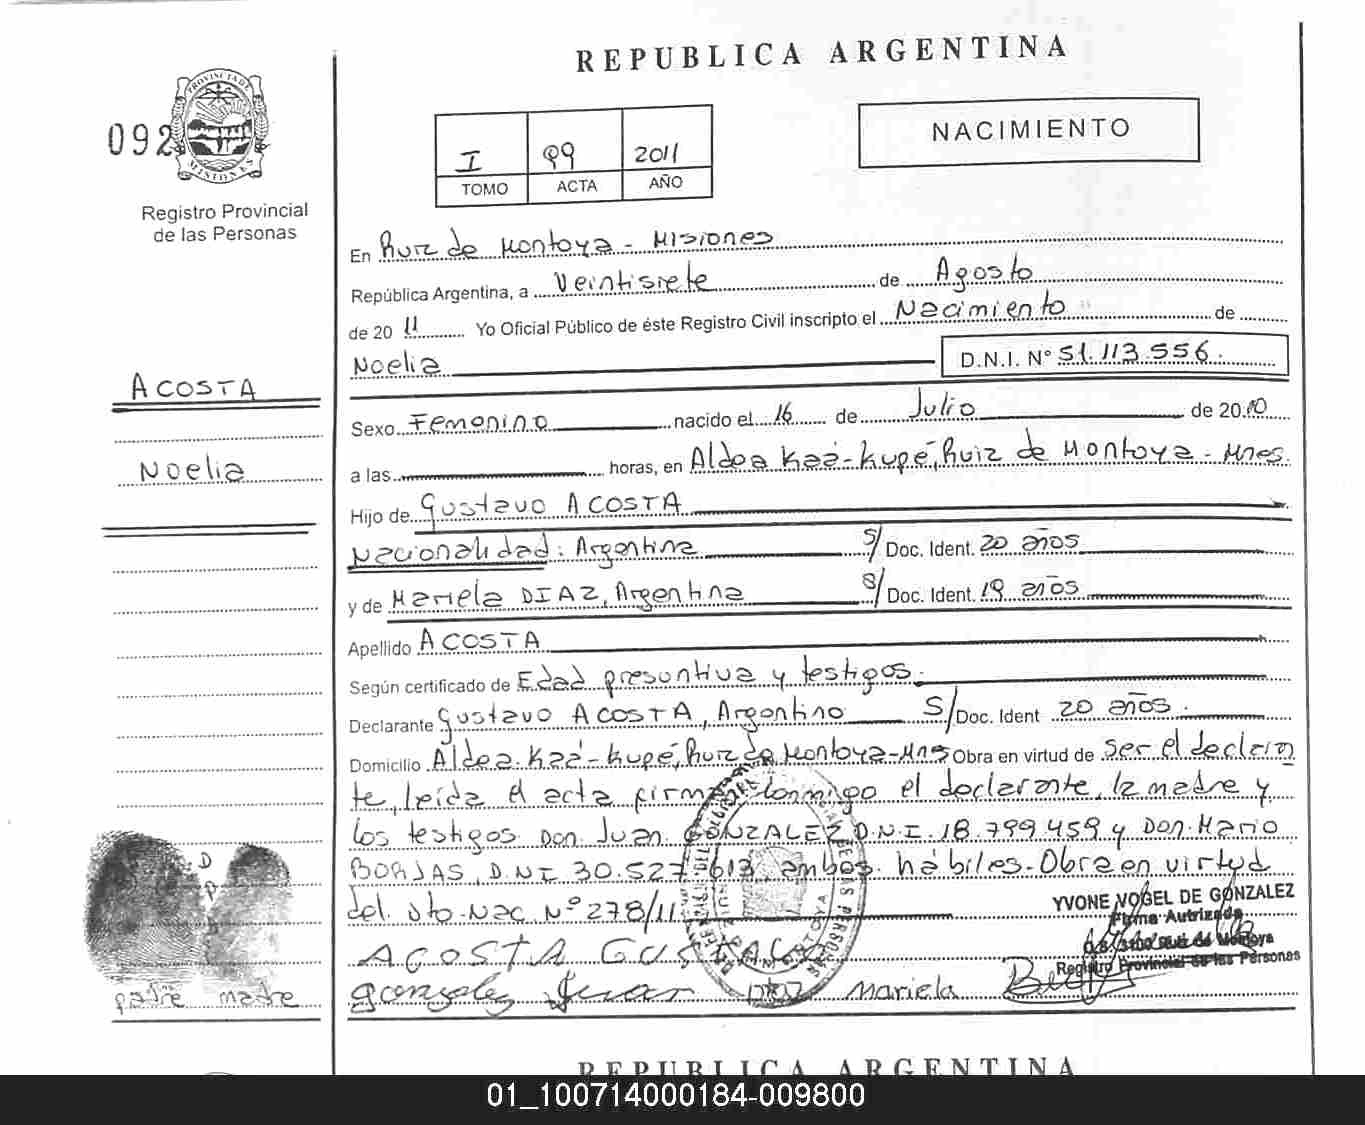 REPUBLICA ARGENTINA
092
PROVINCIA DE
MISIONES
Registro Provincial
de las Personas
I 99 2011
TOMO ACTA AÑO
NACIMIENTO
En Ruiz de Montoya - Misiones
República Argentina, a Veintisiete de Agosto
de 2011 Yo Oficial Público de éste Registro Civil inscripto el Nacimiento de
Noelia D.N.I. N° 51.113.556.
ACOSTA
Noelia
Sexo Femenino nacido el 16 de Julio de 2010
a las horas, en Aldea Kaá-Kupé, Ruiz de Montoya - Mnes.
Hijo de Gustavo ACOSTA
Nacionalidad: Argentina S/ Doc. Ident. 20 años
y de Mariela DIAZ, Argentina S/ Doc. Ident. 19 años
Apellido ACOSTA
Según certificado de Edad presuntiva y testigos.
Declarante Gustavo ACOSTA, Argentino S/ Doc. Ident 20 años.
Domicilio Aldea Kaá-Kupé, Ruiz de Montoya-Mns Obra en virtud de ser el declaran
te, leída el acta firma conmigo el declarante, la madre y
los testigos Don Juan GONZALEZ D.N.I. 18.799.459 y Don Mario
BORJAS, D.N.I 30.527.613, ambos hábiles. Obra en virtud
del Nac. N° 278/11
YVONE VOGEL DE GONZALEZ
Firma Autorizada
Ruiz de Montoya
Registro Provincial de las Personas
ACOSTA GUSTAVO
gonzalez Juan DIAZ Mariela
D
P
D
padre madre
REPUBLICA ARGENTINA
01_100714000184-009800